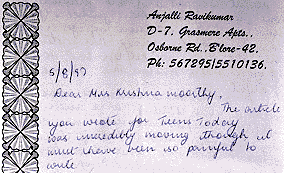 Anjalli Ravikumar
D-7, Grasmere Apts.,
Osborne Rd., B'lore-42.
Ph: 567295|5510136.
5/8/97
Dear Mrs Krishna moorthy,
The article
you wrote for Teens Today
was incredibly moving though it
must have been so painful to
write